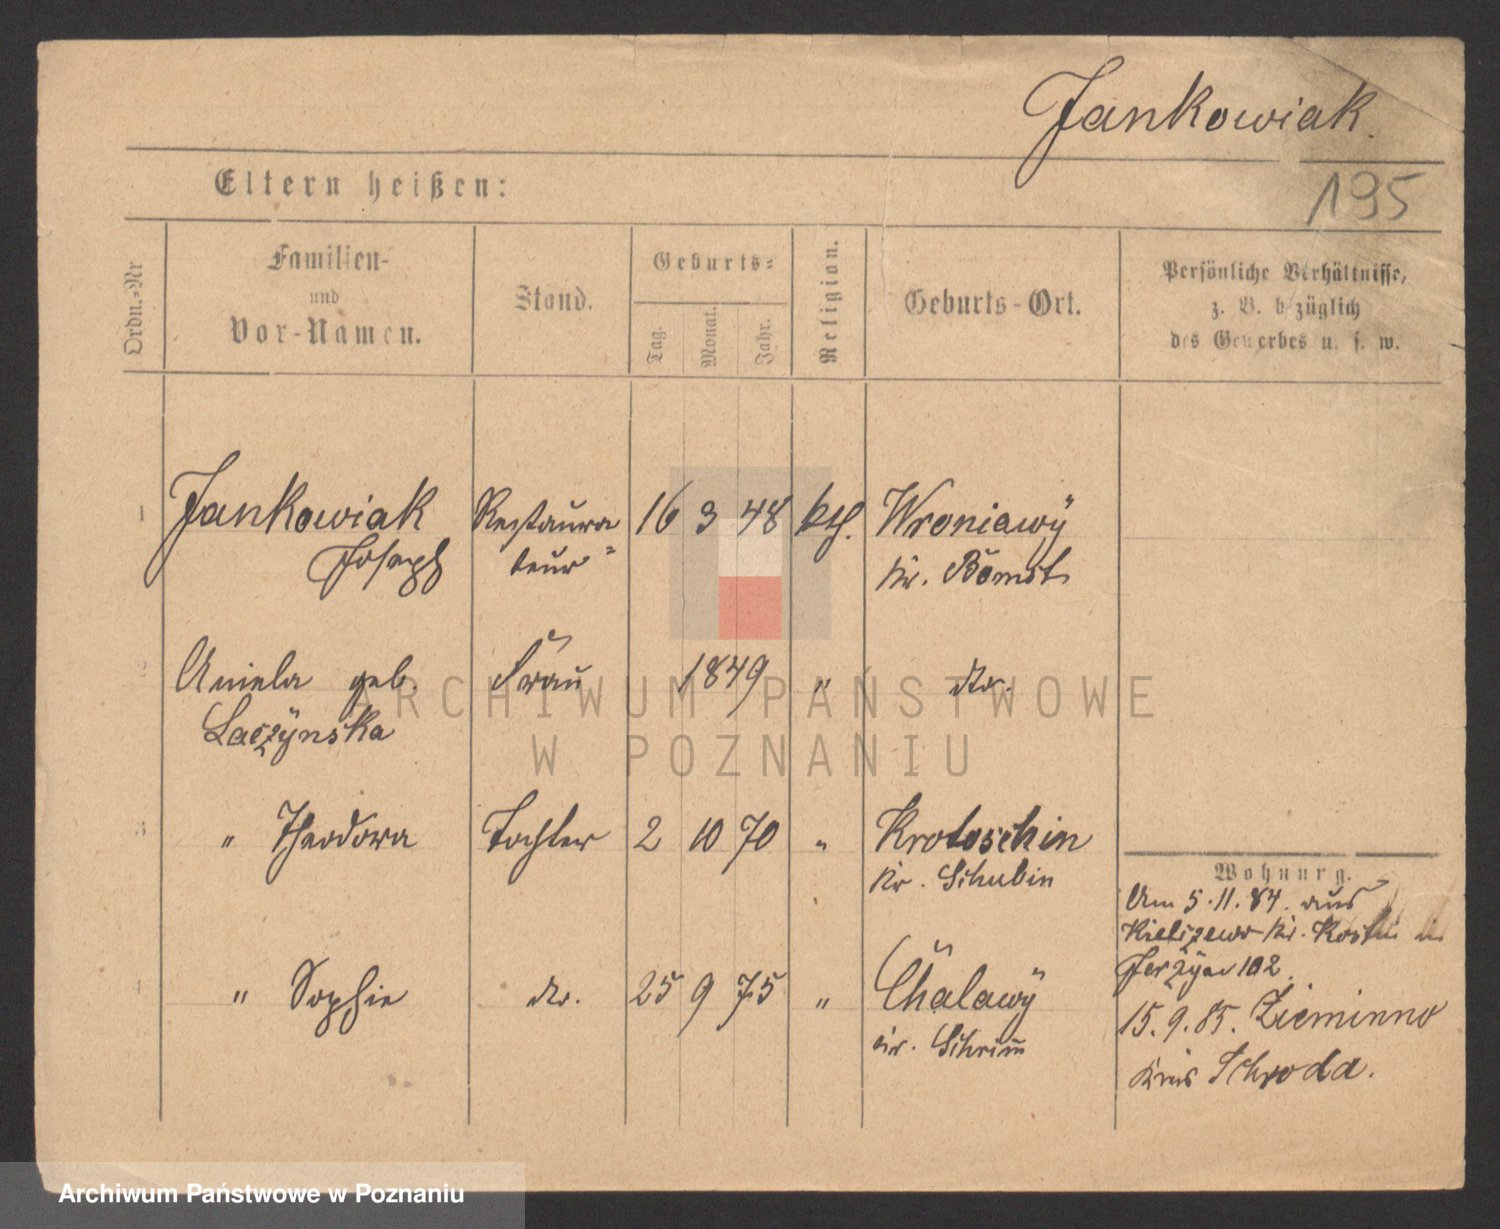 Jankowiak.
195
Eltern heißen:
Ordn.-Nr
Familien-
und
Vor-Namen.
Stand.
Geburts-
Tag.
Monat.
Jahr.
Religion.
Geburts-Ort.
Persönliche Verhältnisse,
z. B. bezüglich
des Gewerbes u. s. w.
1 Jankowiak Restaura 16 3 48 kth. Wroniawy
Joseph teur Kr. Bomst
2 Aniela geb. Frau 1849 " do.
Laczynska
3 " Theodora Tochter 2 10 70 " Krotoschin
Kr. Schubin
4 " Sophie do. 25 9 75 " Chalawy
Kr. Schrim
Wohnung.
Am 5.11.84. aus
Kr. in
Jerzyce 102.
15.9.85. Zieminno
Kreis Schroda.
ARCHIWUM PAŃSTWOWE
W POZNANIU
Archiwum Państwowe w Poznaniu